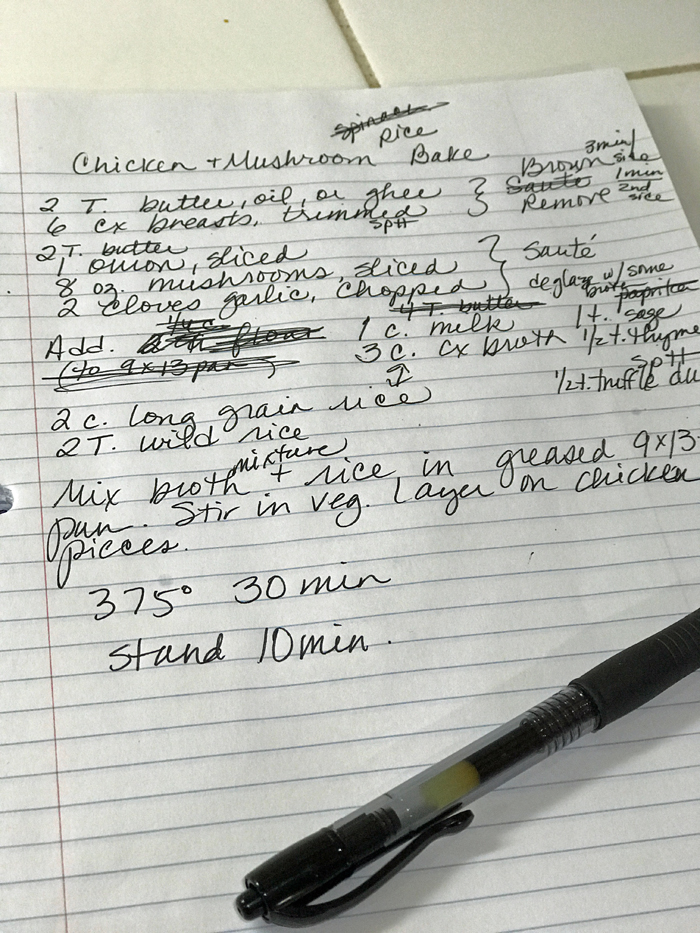 spinach
Rice
Chicken + Mushroom Bake
2 T. butter, oil, or ghee
6 cx breasts, trimmed
SPH
Brown 3min/side
Sauté 1min
Remove 2nd side
2 T. butter
1 onion, sliced
8 oz. mushrooms, sliced
2 cloves garlic, chopped
Sauté
deglaze w/ some
broth
paprika
4 T. butter
1/4 c.
Add. flour
(to 9x13 pan)
1 c. milk
3 c. cx broth
1 t. sage
1/2 t. thyme
SPH
1/2 t. truffle du
2 c. long grain rice
2 T. wild rice
mixture
Mix broth + rice in greased 9x13
pan. Stir in veg. Layer on chicken
pieces.
375° 30 min
Stand 10 min.